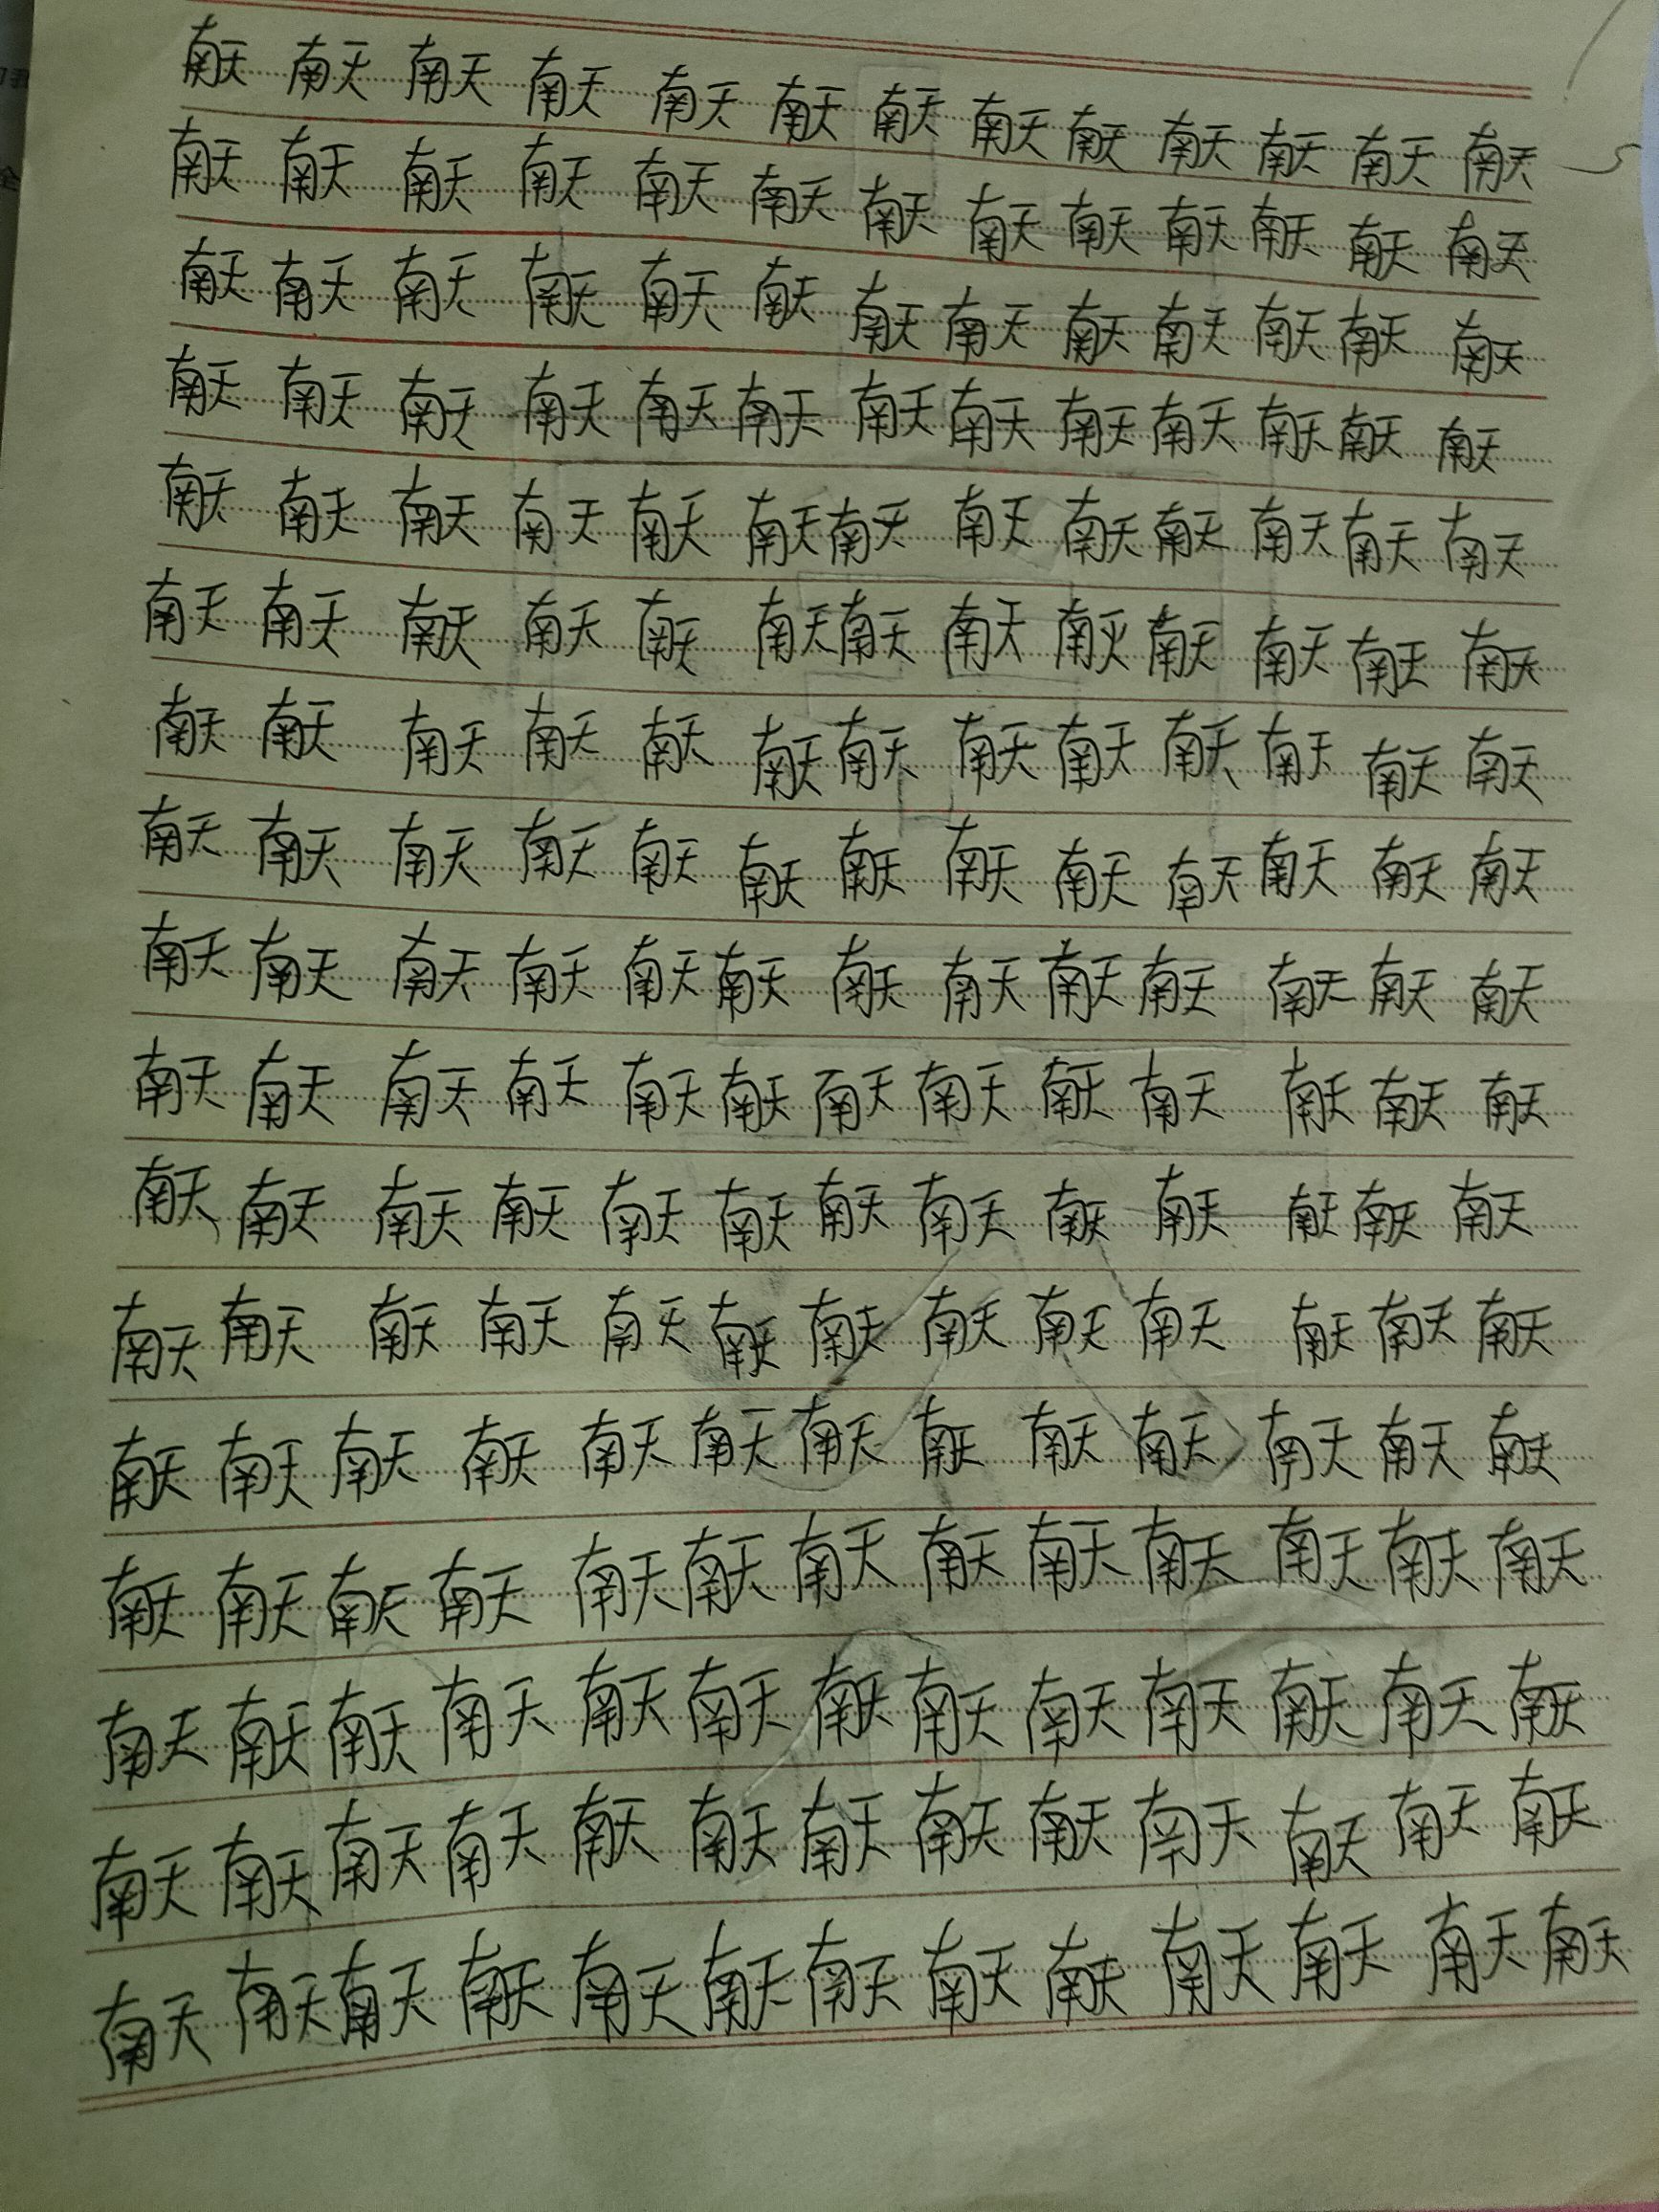 南天 南天 南天 南天 南天 南天 南天 南天 南天 南天 南天 南天 南天
南天 南天 南天 南天 南天 南天 南天 南天 南天 南天 南天 南天 南天
南天 南天 南天 南天 南天 南天 南天 南天 南天 南天 南天 南天 南天
南天 南天 南天 南天 南天 南天 南天 南天 南天 南天 南天 南天 南天
南天 南天 南天 南天 南天 南天 南天 南天 南天 南天 南天 南天 南天
南天 南天 南天 南天 南天 南天 南天 南天 南天 南天 南天 南天 南天
南天 南天 南天 南天 南天 南天 南天 南天 南天 南天 南天 南天 南天
南天 南天 南天 南天 南天 南天 南天 南天 南天 南天 南天 南天 南天
南天 南天 南天 南天 南天 南天 南天 南天 南天 南天 南天 南天 南天
南天 南天 南天 南天 南天 南天 南天 南天 南天 南天 南天 南天 南天
南天 南天 南天 南天 南天 南天 南天 南天 南天 南天 南天 南天 南天
南天 南天 南天 南天 南天 南天 南天 南天 南天 南天 南天 南天 南天
南天 南天 南天 南天 南天 南天 南天 南天 南天 南天 南天 南天 南天
南天 南天 南天 南天 南天 南天 南天 南天 南天 南天 南天 南天 南天
南天 南天 南天 南天 南天 南天 南天 南天 南天 南天 南天 南天 南天
南天 南天 南天 南天 南天 南天 南天 南天 南天 南天 南天 南天 南天
南天 南天 南天 南天 南天 南天 南天 南天 南天 南天 南天 南天 南天